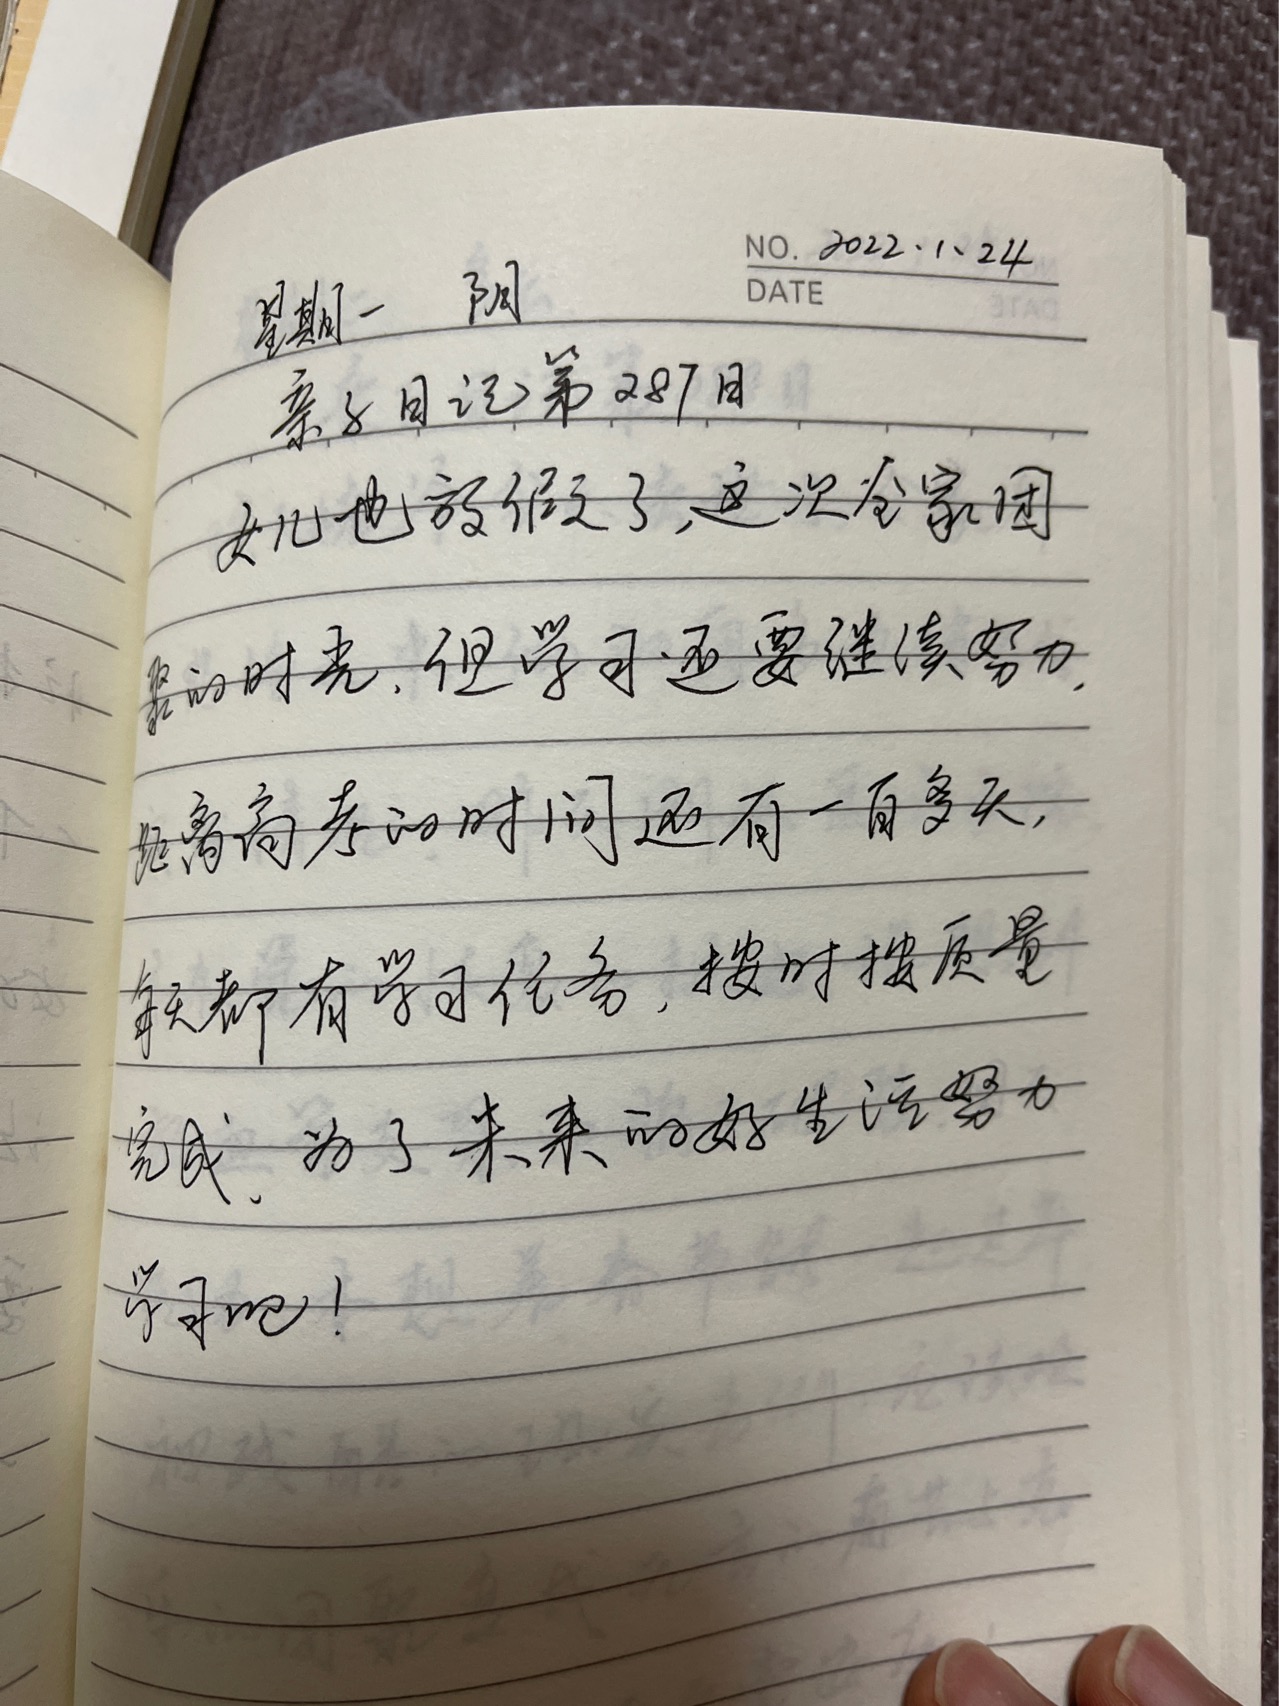 NO. 2022.1.24
DATE
星期一 阴
亲子日记第287日
女儿也放假了,这次全家团
聚的时光,但学习还要继续努力,
距离高考的时间还有一百多天,
每天都有学习任务,按时按质量
完成,为了未来的好生活努力
学习吧!